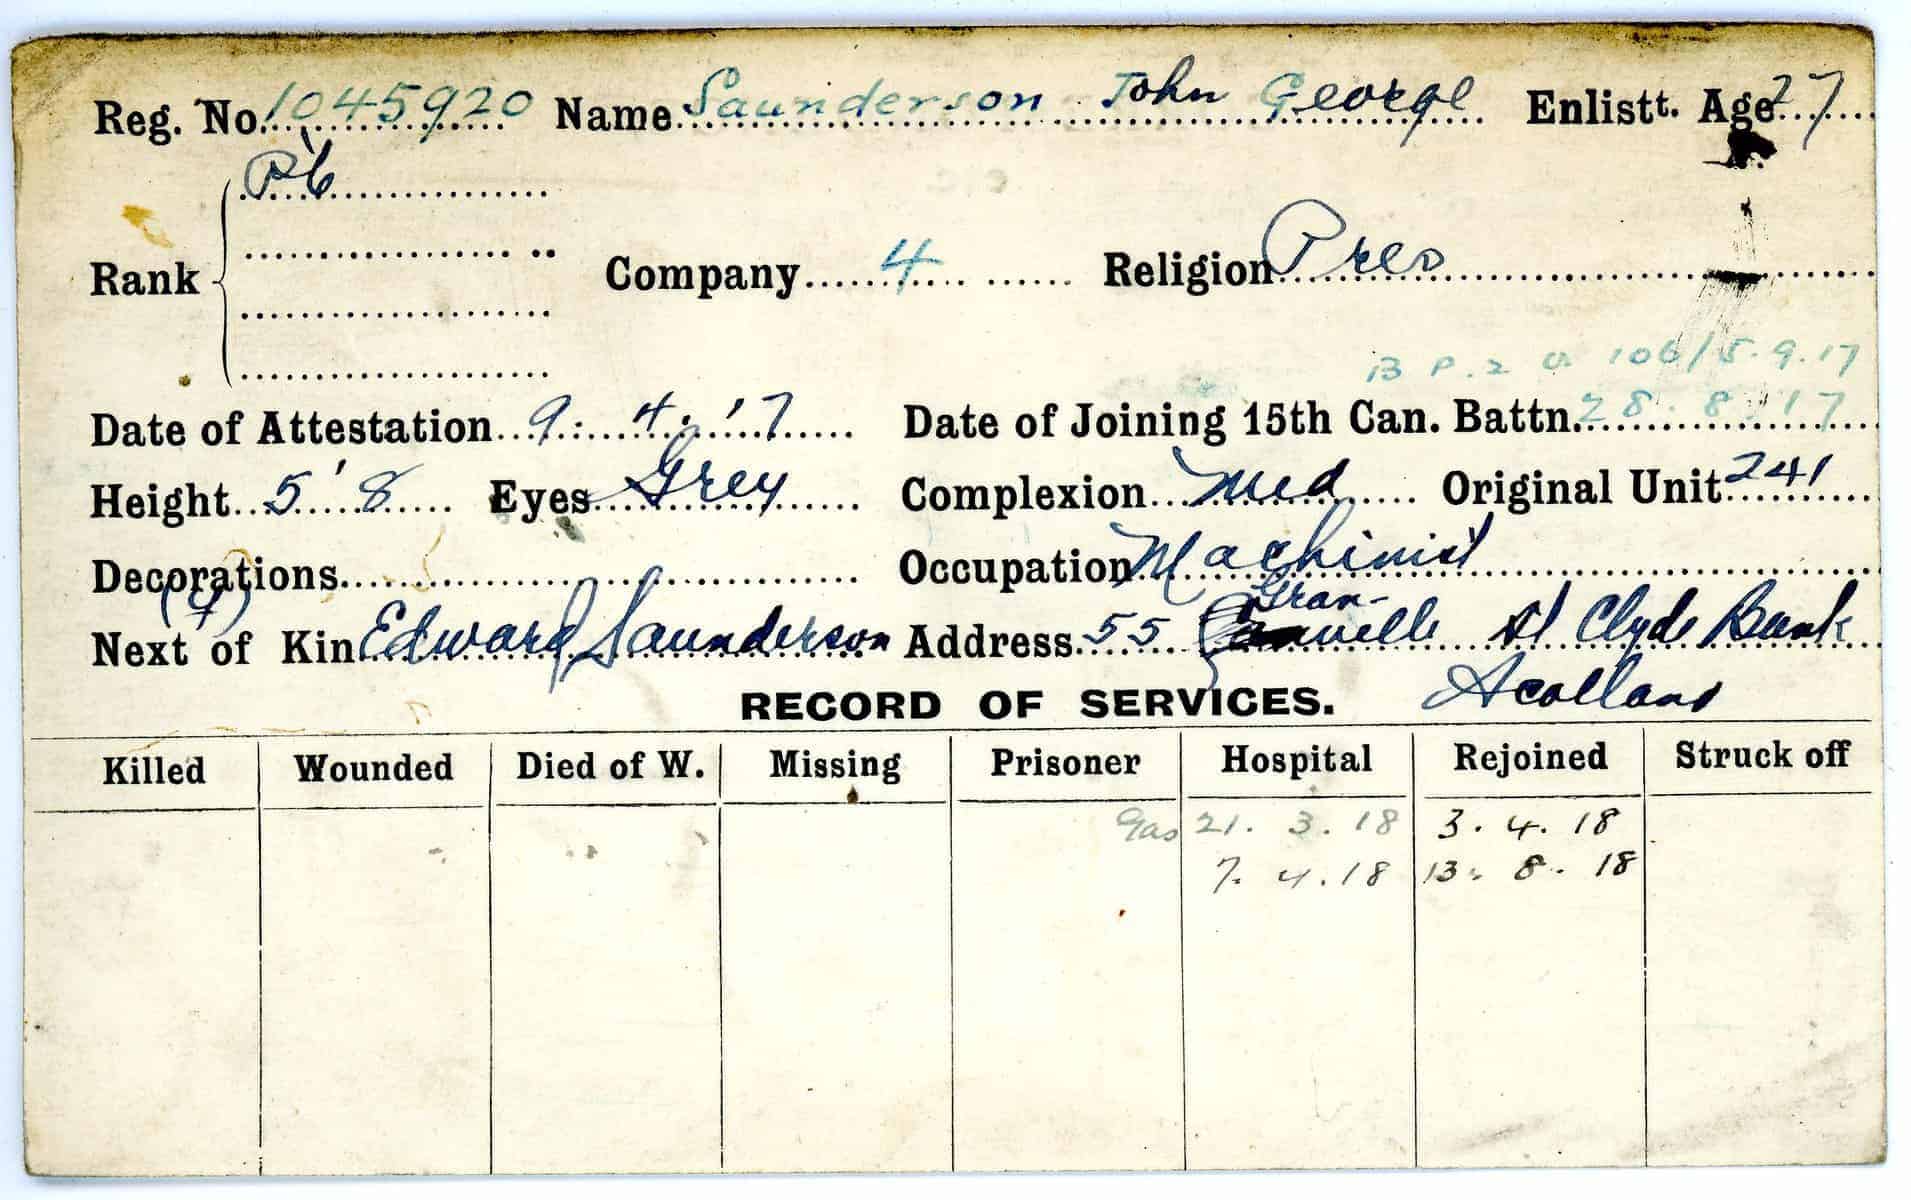 Reg. No. 1045920 Name Saunderson John George Enlistt. Age 27
Pte
Rank Company 4 Religion Pres
B P. 2 O 106/5.9.17
Date of Attestation 9. 4. '17 Date of Joining 15th Can. Battn. 28. 8. 17
Height 5' 8 Eyes Grey Complexion Med Original Unit 241
Decorations Occupation Machinist
Gran-
Next of Kin Edward Saunderson Address 55 ville St Clyde Bank
RECORD OF SERVICES. Scotland
Killed Wounded Died of W. Missing Prisoner Hospital Rejoined Struck off
Gas 21. 3. 18 3. 4. 18
7. 4. 18 13. 8. 18